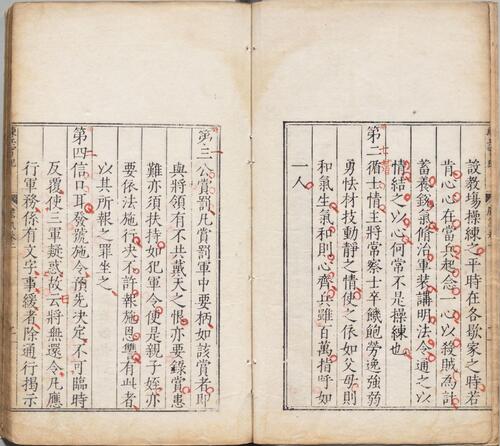 設教場操練之平時在各歇家之時若
肯心心在當兵起念一心以殺賊為計
蓄養銳氣脩治軍裝講明法令通之以
情結之以心何常不是操練也
第二循士情主將常察士卒饑飽勞逸強弱
勇怯材技動靜之情使之依如父母則
和氣生氣和則心齊兵雖百萬指呼如
一人
第三公賞罰凡賞罰軍中要柄如該賞者即
與將領有不共戴天之恨亦要錄賞患
難亦須扶持如犯軍令便是親子姪亦
要依法施行決不許報施恩讐有此者
以其所報之罪坐之
第四信口耳發號施令預先決定不可臨時
反覆使三軍疑惑故云將無還令凡應
行軍務係有文字事緩者除通行揭示